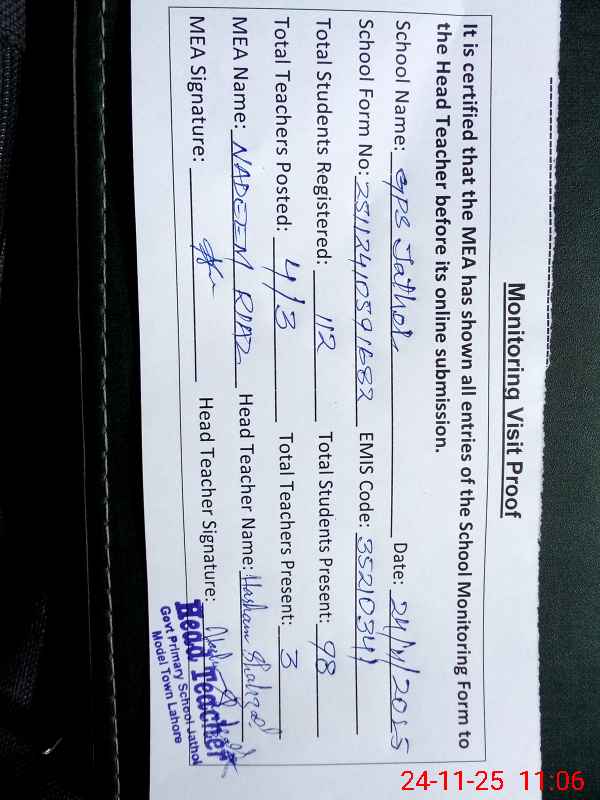 Monitoring Visit Proof
It is certified that the MEA has shown all entries of the School Monitoring Form to
the Head Teacher before its online submission.
School Name: GPS Jathol Date: 24/11/2025
School Form No: 25112410591682 EMIS Code: 35210341
Total Students Registered: 112 Total Students Present: 98
Total Teachers Posted: 4/3 Total Teachers Present: 3
MEA Name: NADEEM RIAZ Head Teacher Name: Hasham Shahzad
MEA Signature: Head Teacher Signature:
Head Teacher
Govt Primary School Jathol
Model Town Lahore
24-11-25 11:06